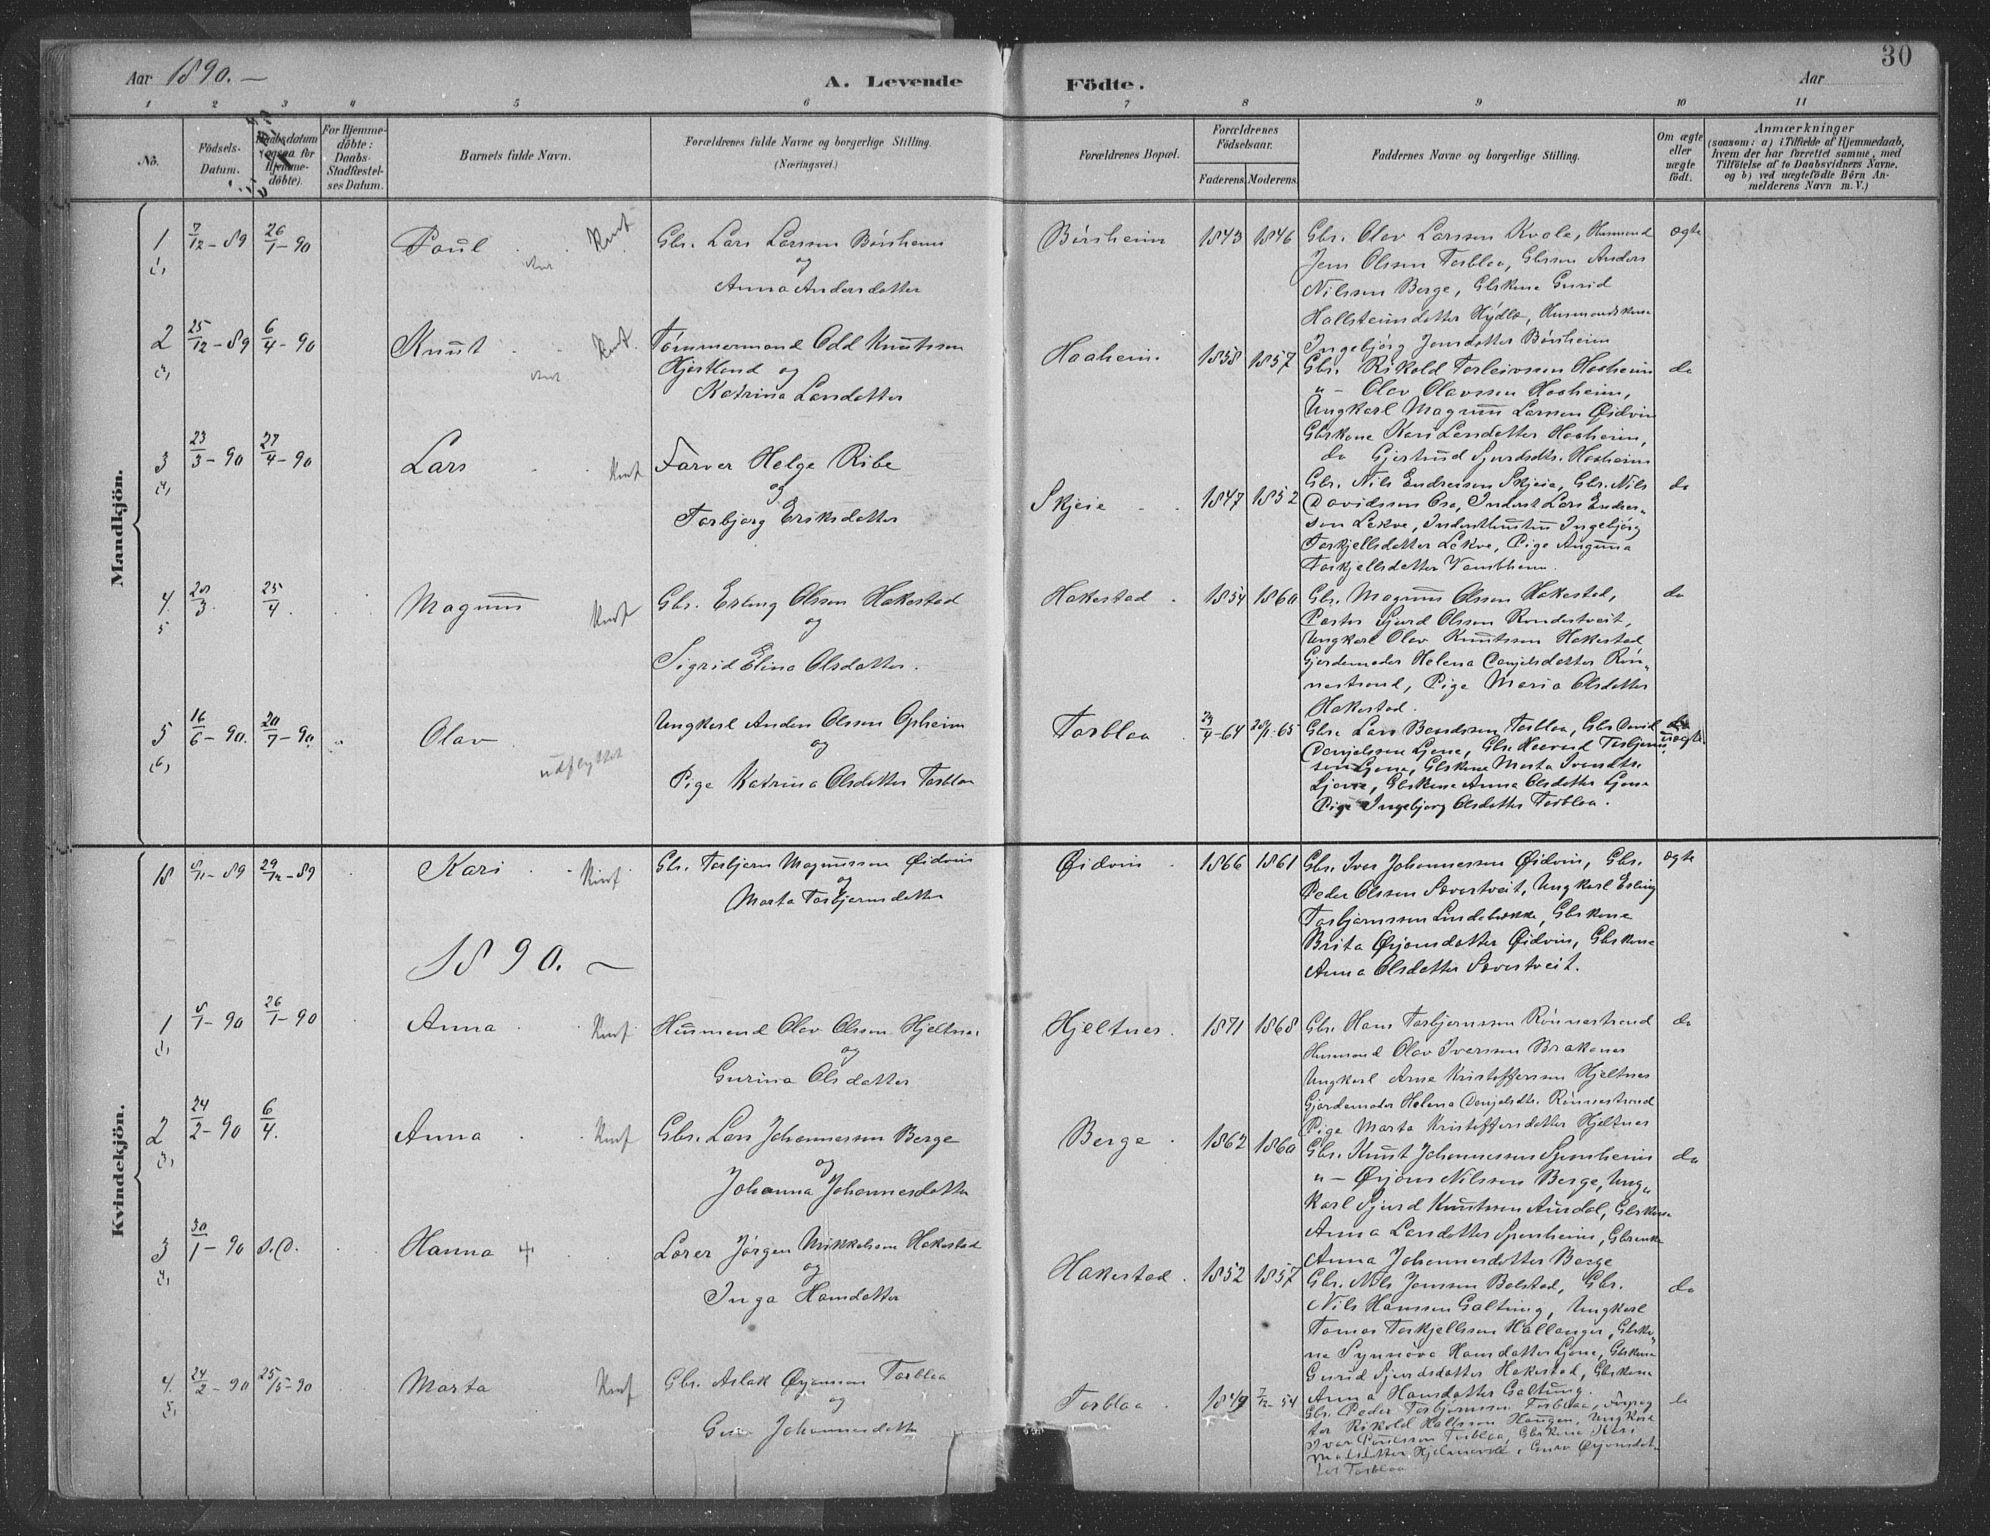 Aar 1890. —
A. Levende Födte.
Aar
30
1 2 3 4 5 6 7 8 9 10 11
No.
Födsels-Datum.
Daabsdatum (ogsaa for Hjemme-döbte).
For Hjemme-döbte: Daabs-Stadfæstel-ses Datum.
Barnets fulde Navn.
Forældrenes fulde Navne og borgerlige Stilling.
(Næringsvei.)
Forældrenes Bopæl.
Forældrenes Födselsaar.
Faderens. Moderens.
Faddernes Navne og borgerlige Stilling.
Om ægte eller uægte födt.
Anmærkninger
(saasom: a) i Tilfælde af Hjemmedaab,
hvem der har forrettet samme, med
Tilföielse af to Daabsvidners Navne.
og b) ved uægtefödte Börn An-
melderens Navn m. V.)
Mandkjön.
1 7/12 - 89 26/1 - 90 Paul Gbr. Lars Larssen Børsheim
og
Anna Andersdatter
Børsheim 1843 1846 Gbr. Olav Larssen Kvale, Husmand
Jens Olssen Torblaa, Gbrsøn Anders
Nilssen Berge, Gbrkone Gurid
Hallsteinsdatter Hydle, Husmandskone
Ingebjørg Jonsdatter Børsheim
ægte
2 25/12 - 89 6/4 - 90 Knut Tømmermand Odd Knutssen
Hjartland og
Katrina Larsdatter
Haaheim 1858 1857 Gbr. Rikold Torleivssen Haaheim
" — Olav Olavssen Haaheim,
Ungkarl Magnus Larssen Øidvin
Gbrkone Kari Larsdatter Haaheim,
do Gjertrud Sjurdsdtr. Haaheim
do
3 23/3 - 90 27/4 - 90 Lars Farver Helge Ribe
og
Torbjørg Eriksdatter
Skjeie 1847 1852 Gbr. Nils Endressen Skjeie, Gbr. Nils
Davidssen Osa, Inderst Lars Endres-
sen Lekve, Ingebjørg
Torkjellsdatter Lekve, Pige Anguna
Torkjellsdatter Vambheim.
do
4. 25/4. Magnus Gbr. Erling Olssen Hakestad
og
Sigrid Elina Olsdatter.
Hakestad 1854 1860 Gbr. Magnus Olssen Hakestad,
Sjurd Olssen Rondestveit,
Ungkarl Olav Knutssen Hakestad
Gjordemoder Helena Danjelsdatter Røn-
nestrand, Pige Maria Olsdatter
Hakestad.
do
5 16/6 - 90. 20/7 - 90. Olav udflyttet
Ungkarl Anders Olssen Opheim
og
Pige Katrina Olsdatter Torblaa
Torblaa 64 65 Gbr. Lars Torblaa, Gbr. David
Danjelssen Ljone, Gbr. Haavard Torbjørns-
sen Ljone, Gbrkone Marta
Ljone, Gbrkone Anna Olsdatter Ljone
Pige Ingebjørg Olsdatter Torblaa.
uægte
Kvindekjön.
18 8/11 - 89 29/12 - 89 Kari Gbr. Torbjørn Magnussen Øidvin
og
Marta Torbjørnsdatter
Øidvin 1866 1861 Gbr. Ivar Johannessen Øidvin, Gbr.
Peder Olssen Sævertveit, Ungkarl Erling
Torbjørnssen Lindebrække, Gbrkone
Brita Ørjansdatter Øidvin, Gbrkone
Anna Olsdatter Sævertveit.
ægte
1890. —
1 8/1 - 90 26/1 - 90 Anna Husmand Olav Olssen Hjeltnes
og
Gurina Olsdatter
Hjeltnes 1871 1868 Gbr. Hans Torbjørnssen Rønnestrand
Husmand Olav Iverssen Brakenes
Ungkarl Arne Kristofferssen Hjeltnes
Gjordemoder Helena Danjelsdtr. Rønnestrand
Pige Marta Kristoffersdatter Hjeltnes
do
2 24/2 - 90 6/4. Anna Gbr. Lars Johannessen Berge
og
Johanna Johannesdatter
Berge 1862 1860 Gbr. Knut Johannessen Spaanheim
" — Ørjans Nilssen Berge, Ung-
karl Sjurd Knutssen Aurdal, Gbrkone
Anna Larsdatter Spaanheim,
Anna Johannesdatter Berge
do
3 30/1 - 90 s.D. Hanna + Lærer Jørgen Mikkelssen Hakestad
og
Inga Hansdatter
Hakestad 1852 1857 Gbr. Nils Jonssen Bolstad, Gbr.
Nils Hanssen Galtung, Ungkarl
Tomas Torkjellssen Hallanger, Gbrko-
ne Synnøva Hansdatter Ljone, Gbrkone
Gurid Sjurdsdatter Hakestad, Gbrkone
Anna Hansdatter Galtung.
do
4. 24/2 - 90 25/5 - 90 Marta Gbr. Aslak Ørjanssen Torblaa
og
Guro Johannesdatter
Torblaa 1849 54 Gbr. Peder Torbjørnssen Torblaa, Forpag
ter Rikold Hallssen Haugen, Ungkarl
Ivar Torblaa, Gbrkone Kari
Guro Ørjansdat-
ter Torblaa